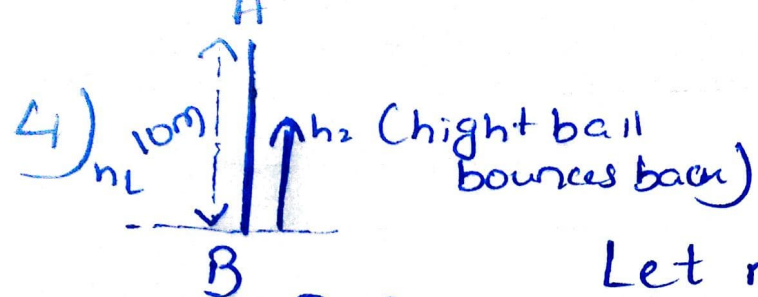 A
4) h1 10m h2 (hight ball
bounces back)
B Let